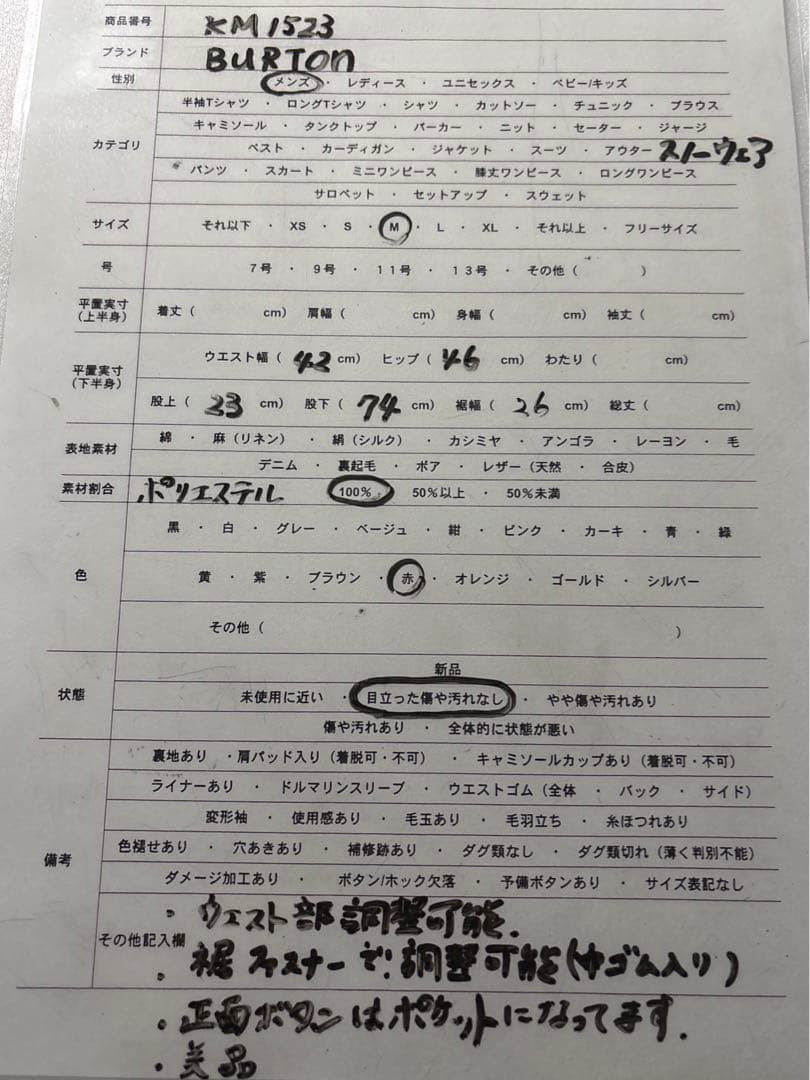 商品番号 KM1523
ブランド BURTON
性別 メンズ ・ レディース ・ ユニセックス ・ ベビー/キッズ
半袖Tシャツ ・ ロングTシャツ ・ シャツ ・ カットソー ・ チュニック ・ ブラウス
キャミソール ・ タンクトップ ・ パーカー ・ ニット ・ セーター ・ ジャージ
カテゴリ ベスト ・ カーディガン ・ ジャケット ・ スーツ ・ アウター スノーウェア
パンツ ・ スカート ・ ミニワンピース ・ 膝丈ワンピース ・ ロングワンピース
サロペット ・ セットアップ ・ スウェット
サイズ それ以下 ・ XS ・ S ・ M ・ L ・ XL ・ それ以上 ・ フリーサイズ
号 7号 ・ 9号 ・ 11号 ・ 13号 ・ その他 ( )
平置実寸(上半身) 着丈 ( cm) 肩幅 ( cm) 身幅 ( cm) 袖丈 ( cm)
平置実寸(下半身) ウエスト幅 ( 42 cm) ヒップ ( 46 cm) わたり ( cm)
股上 ( 23 cm) 股下 ( 74 cm) 裾幅 ( 26 cm) 総丈 ( cm)
表地素材 綿 ・ 麻 (リネン) ・ 絹 (シルク) ・ カシミヤ ・ アンゴラ ・ レーヨン ・ 毛
デニム ・ 裏起毛 ・ ボア ・ レザー (天然 ・ 合皮)
素材割合 ポリエステル 100% 50%以上 ・ 50%未満
黒 ・ 白 ・ グレー ・ ベージュ ・ 紺 ・ ピンク ・ カーキ ・ 青 ・ 緑
色 黄 ・ 紫 ・ ブラウン ・ 赤 ・ オレンジ ・ ゴールド ・ シルバー
その他 ( )
新品
状態 未使用に近い ・ 目立った傷や汚れなし ・ やや傷や汚れあり
傷や汚れあり ・ 全体的に状態が悪い
裏地あり ・肩パッド入り (着脱可・不可) ・ キャミソールカップあり (着脱可・不可)
ライナーあり ・ ドルマリンスリーブ ・ ウエストゴム (全体 ・ バック ・ サイド)
変形袖 ・ 使用感あり ・ 毛玉あり ・ 毛羽立ち ・ 糸ほつれあり
備考 色褪せあり ・ 穴あきあり ・ 補修跡あり ・ タグ類なし ・ タグ類切れ (薄く判別不能)
ダメージ加工あり ・ ボタン/ホック欠落 ・ 予備ボタンあり ・ サイズ表記なし
・ウェスト部調整可能.
その他記入欄
・裾ファスナーで調整可能(中ゴム入り)
・正面ボタンはポケットになってます.
・美品